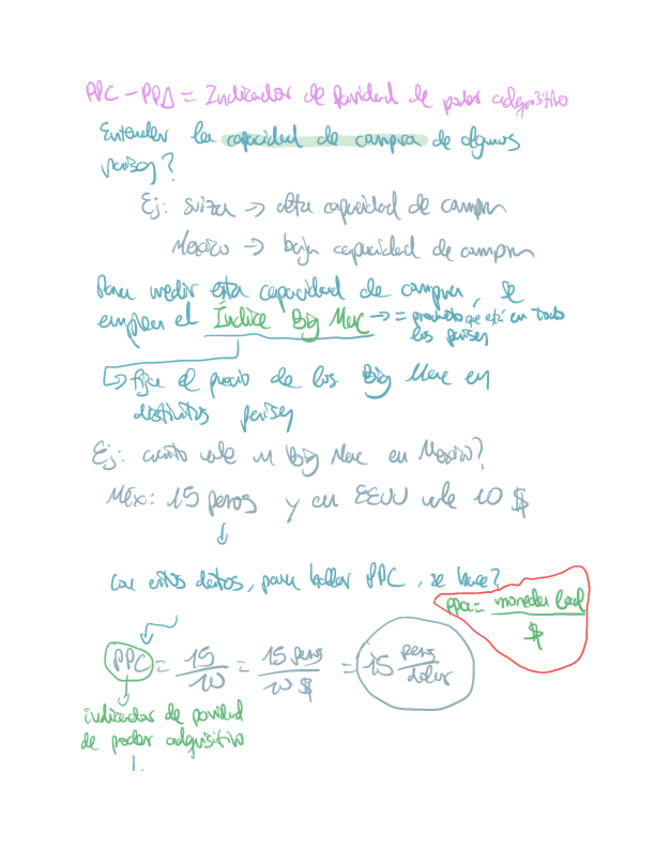 PPC - PPA = Indicador de Paridad de poder adquisitivo
Entender la capacidad de compra de algunos
países?
Ej: Suiza → alta capacidad de compra
Mexico → baja capacidad de compra
Para medir esta capacidad de compra, se
emplea el Índice Big Mac → = producto que está en todo
los países
↳ fija el precio de los Big Mac en
distintos países
Ej: cuánto vale un Big Mac en Mexico?
Méx: 15 pesos y en EEUU vale 10 $
↓
Con estos datos, para hallar PPC, se hace?
ppa = moneda local / $
PPC = 15/10 = 15 pesos/10 $ = 15 pesos/dolar
indicador de paridad
de poder adquisitivo